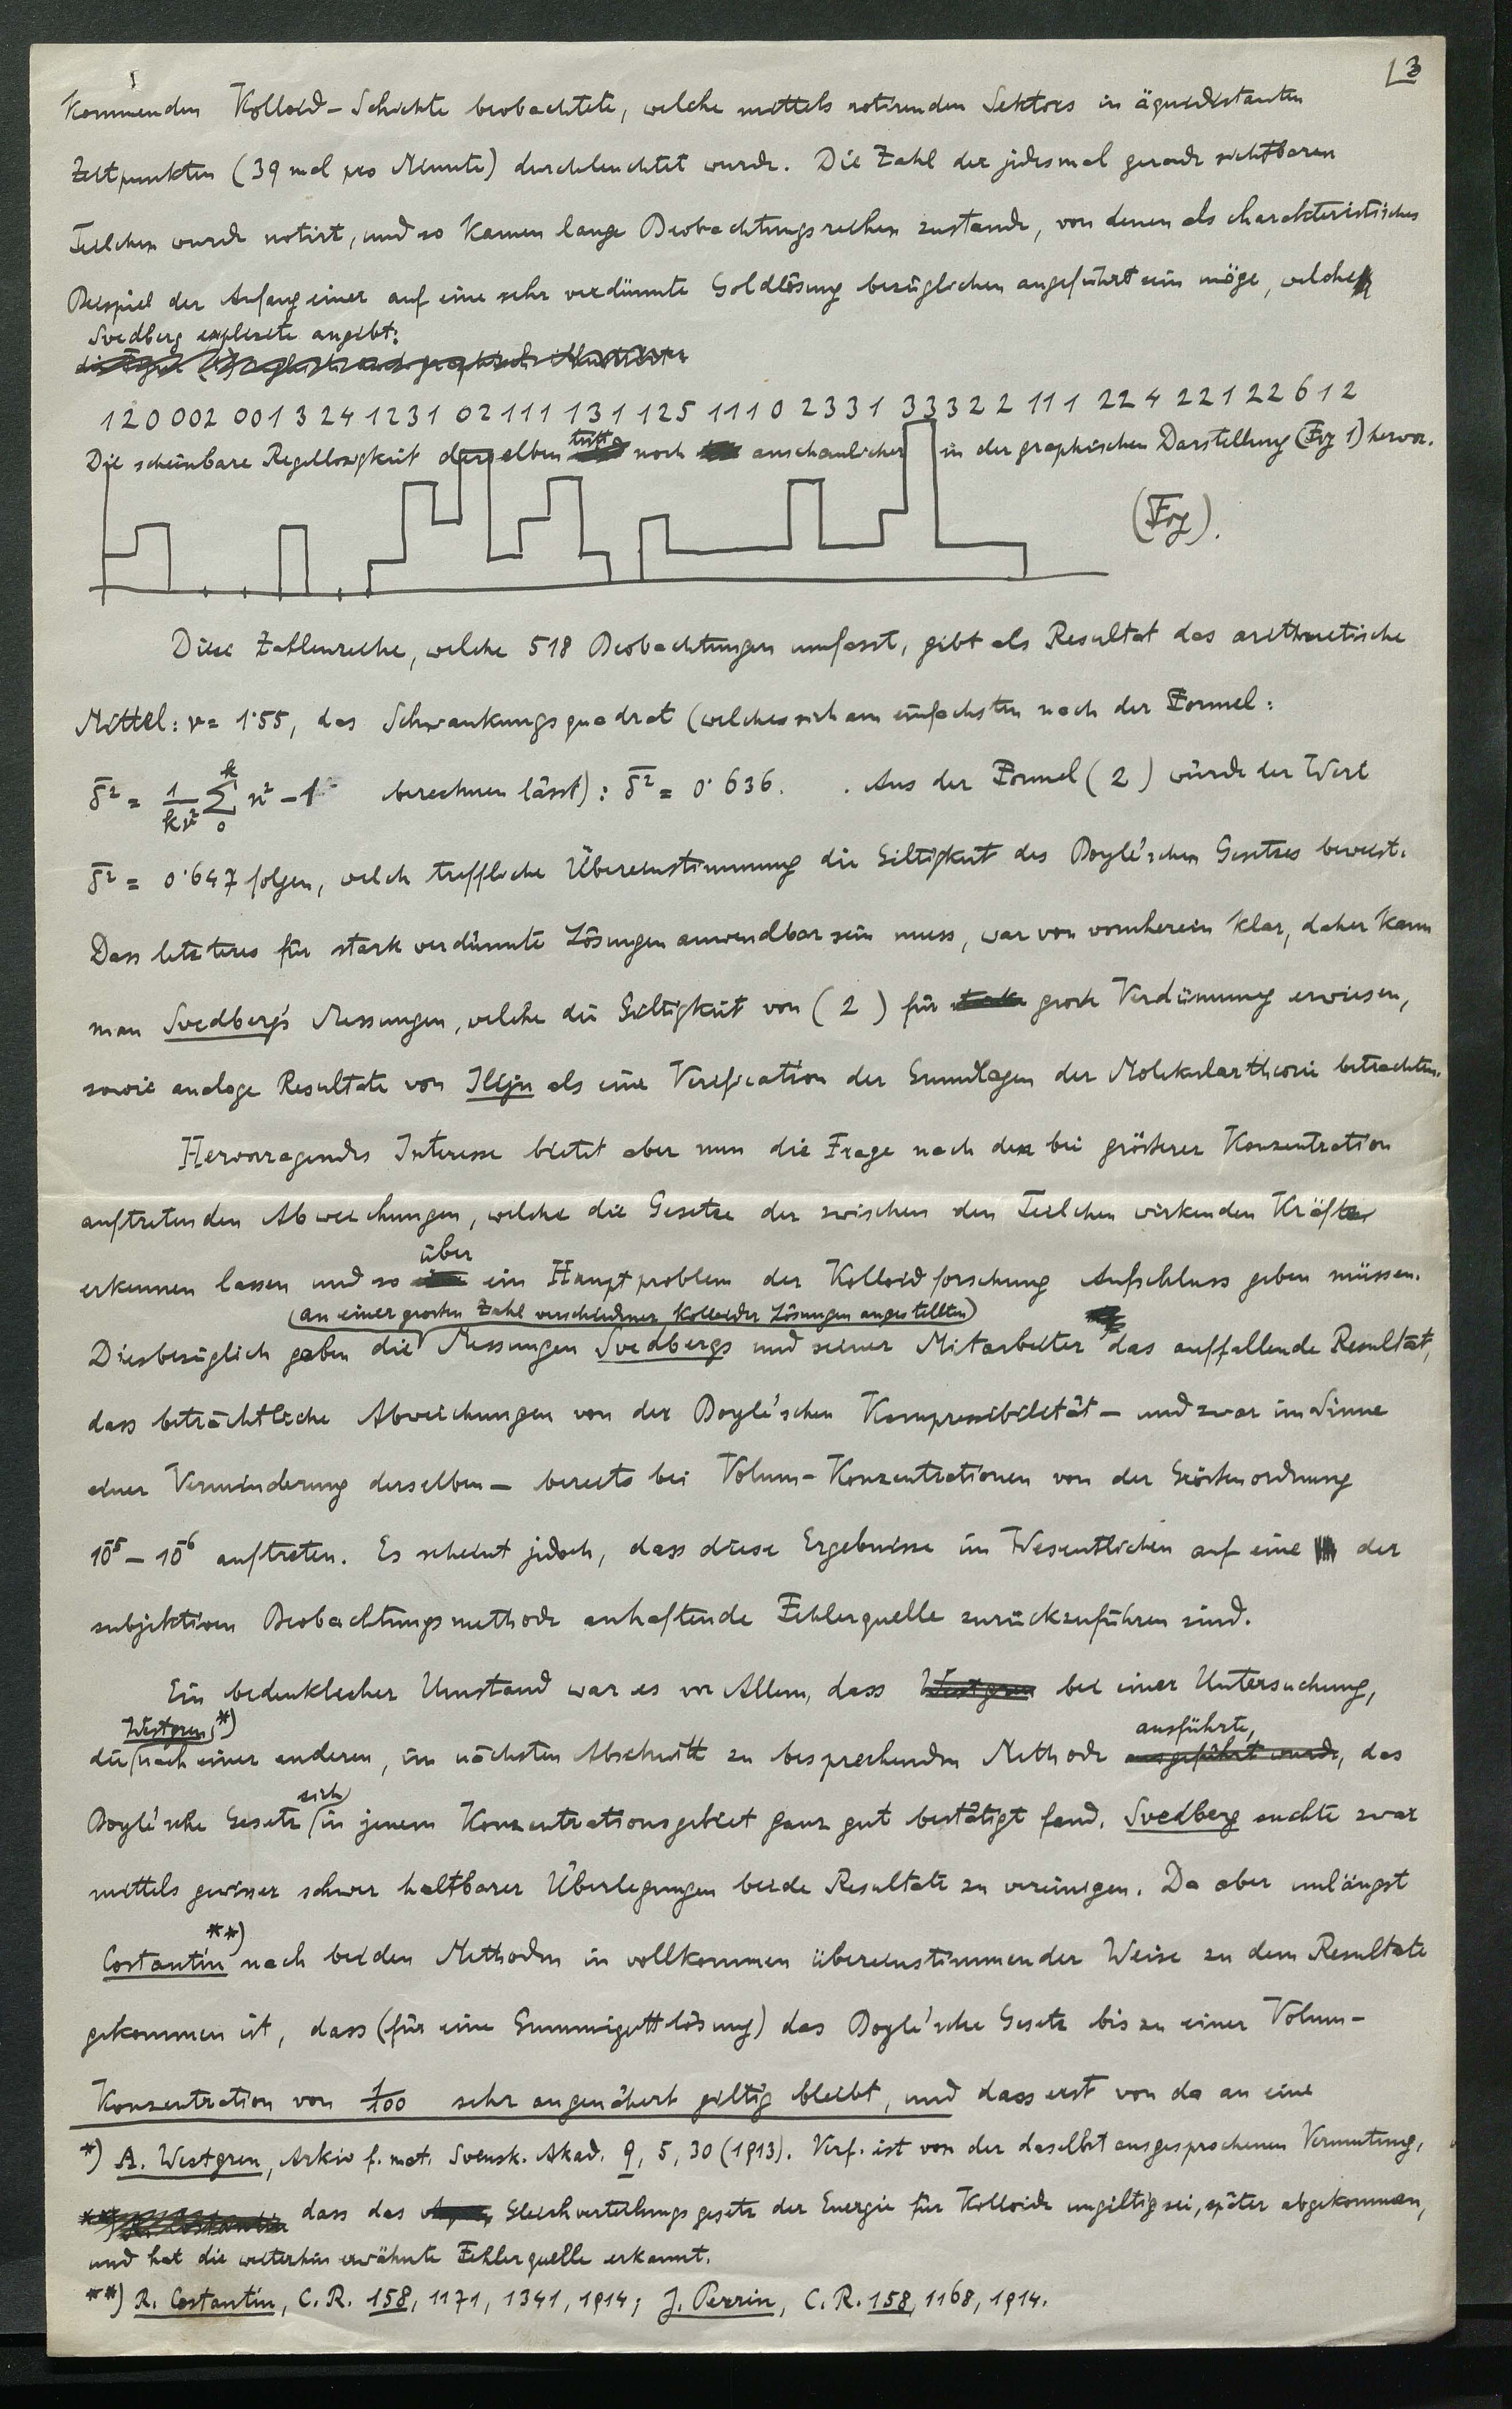 3
kommenden Kolloid-Schichte beobachtete, welche mittels rotirenden Sektors in äquidistanten
Zeitpunkten (39 mal pro Minute) durchleuchtet wurde. Die Zahl der jedesmal gerade sichtbaren
Teilchen wurde notirt, und so kamen lange Beobachtungsreihen zustande, von denen als charakteristisches
Beispiel der Anfang einer auf eine sehr verdünnte Goldlösung bezüglichen angeführt sein möge, welche
Svedberg explicite angibt:
120 002 001 3 24 1231 02 111 131 125 1110 2331 33322 111 224 221 22 612
Die scheinbare Regellosigkeit derselben tritt noch anschaulicher in der graphischen Darstellung (Fig 1) hervor.
(Fig).
Diese Zahlenreihe, welche 518 Beobachtungen umfasst, gibt als Resultat das arithmetische
Mittel: ν = 1·55, das Schwankungsquadrat (welches sich am einfachsten nach der Formel:
δ̄² = 1/kν² Σ₀ᵏ n² − 1 berechnen lässt): δ̄² = 0·636. Aus der Formel (2) würde der Wert
δ̄² = 0·647 folgen, welch treffliche Übereinstimmung die Giltigkeit des Boyle'schen Gesetzes beweist.
Dass letzteres für stark verdünnte Lösungen anwendbar sein muss, war von vornherein klar, daher kann
man Svedberg's Messungen, welche die Giltigkeit von (2) für grosse Verdünnung erwiesen,
sowie analoge Resultate von Iljin als eine Verification der Grundlagen der Molekulartheorie betrachten.
Hervorragendes Interesse bietet aber nun die Frage nach den bei grösserer Konzentration
auftretenden Abweichungen, welche die Gesetze der zwischen den Teilchen wirkenden Kräfte
erkennen lassen und so über ein Hauptproblem der Kolloidforschung Aufschluss geben müssen.
(an einer grossen Zahl verschiedener kolloider Lösungen angestellten)
Diesbezüglich gaben die Messungen Svedbergs und seiner Mitarbeiter das auffallende Resultat,
dass beträchtliche Abweichungen von der Boyle'schen Kompressibilität — und zwar im Sinne
einer Verminderung derselben — bereits bei Volum-Konzentrationen von der Grössenordnung
10⁻⁵ – 10⁻⁶ auftreten. Es scheint jedoch, dass diese Ergebnisse im Wesentlichen auf eine der
subjektiven Beobachtungsmethode anhaftende Fehlerquelle zurückzuführen sind.
Ein bedenklicher Umstand war es vor Allem, dass Westgren bei einer Untersuchung,
Westgren,*) ausführte,
die nach einer anderen, im nächsten Abschnitt zu besprechenden Methode ausgeführt wurde, das
sich
Boyle'sche Gesetz in jenem Konzentrationsgebiet ganz gut bestätigt fand. Svedberg suchte zwar
mittels gewisser schwer haltbarer Überlegungen beide Resultate zu vereinigen. Da aber unlängst
Costantin **) nach beiden Methoden in vollkommen übereinstimmender Weise zu dem Resultate
gekommen ist, dass (für eine Gummiguttlösung) das Boyle'sche Gesetz bis zu einer Volum-
Konzentration von 1/100 sehr angenähert giltig bleibt, und dass erst von da an eine
*) A. Westgren, Arkiv f. mat. Svensk. Akad. 9, 5, 30 (1913). Verf. ist von der daselbst ausgesprochenen Vermutung,
**) R. Costantin dass das Gleichverteilungsgesetz der Energie für Kolloide ungiltig sei, später abgekommen,
und hat die weiterhin erwähnte Fehlerquelle erkannt.
**) R. Costantin, C. R. 158, 1171, 1341, 1914; J. Perrin, C. R. 158, 1168, 1914.